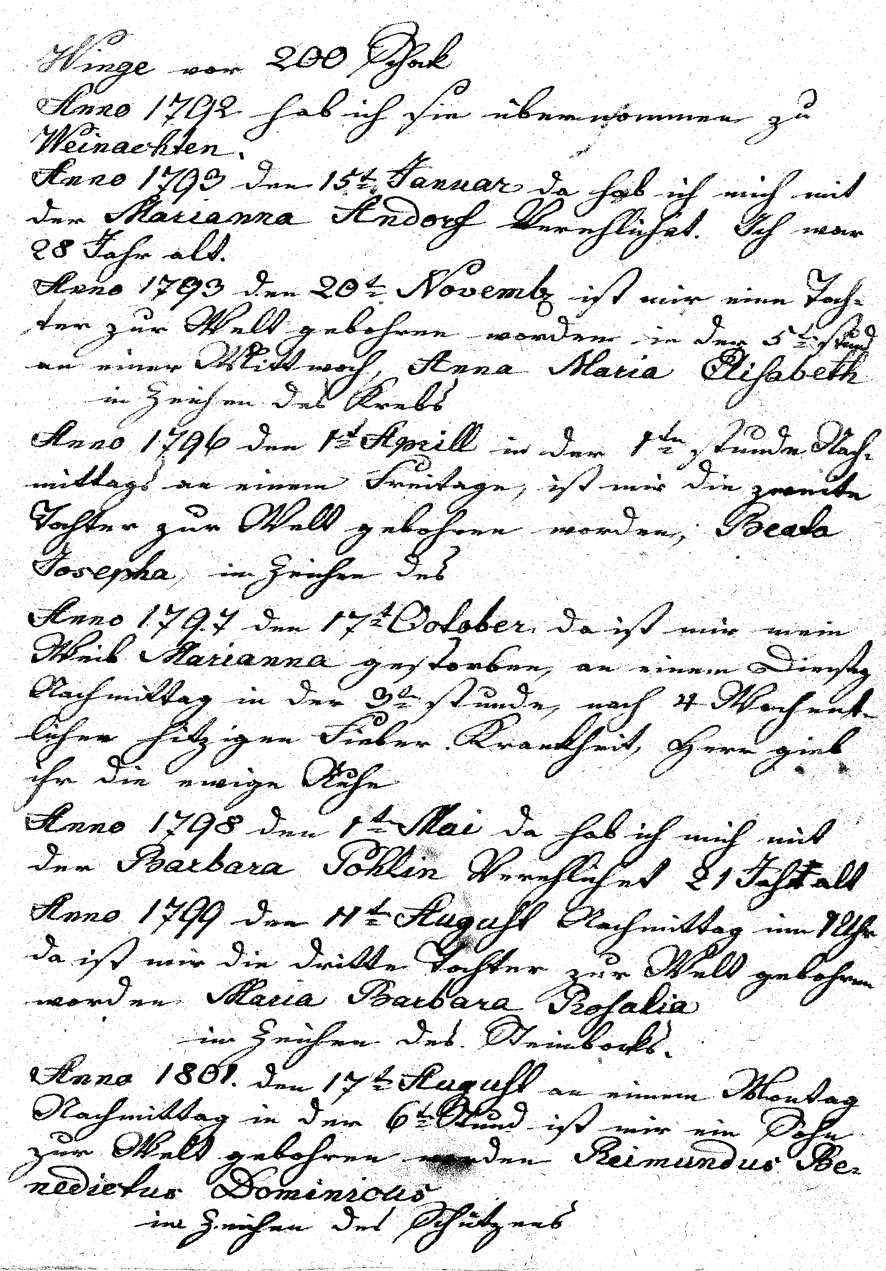 Winge vor 200 Schok
Anno 1792 hab ich sie übernommen zu
Weinachten.
Anno 1793 den 15t Januar da hab ich mich mit
der Marianna Andorf Verehlichet. Ich war
28 Jahr alt.
Anno 1793 den 20t Novemb ist mir eine Toch-
ter zur Welt gebohren worden in der 5t stund
an einer Mittwoch, Anna Maria Elisabeth
in Zeichen des Krebs
Anno 1796 den 1t Aprill in der 1tn stunde Nach-
mittags an einem Freitage, ist mir die zweite
Tochter zur Welt gebohren worden, Beata
Josepha, in Zeichen des
Anno 1797 den 17t October, da ist mir mein
Weib Marianna gestorben, an einem Dienstag
Nachmittag in der 3t stunde, nach 4 Wochent-
lichen hitzigen Fieber Krankheit, Herr gieb
ihr die ewige Ruhe
Anno 1798 den 1t Mai da hab ich mich mit
der Barbara Pohlin Verehlichet 21 Jahr alt
Anno 1799 den 11t August Nachmittag um 1 Uhr
da ist mir die dritte Tochter zur Welt gebohren
worden Maria Barbara Rosalia
in Zeichen des Steinbocks.
Anno 1801. den 17t August an einem Montag
Nachmittag in der 6t Stund ist mir ein Sohn
zur Welt gebohren worden Reimundus Be-
nedictus Dominicus
in Zeichen des Schützens